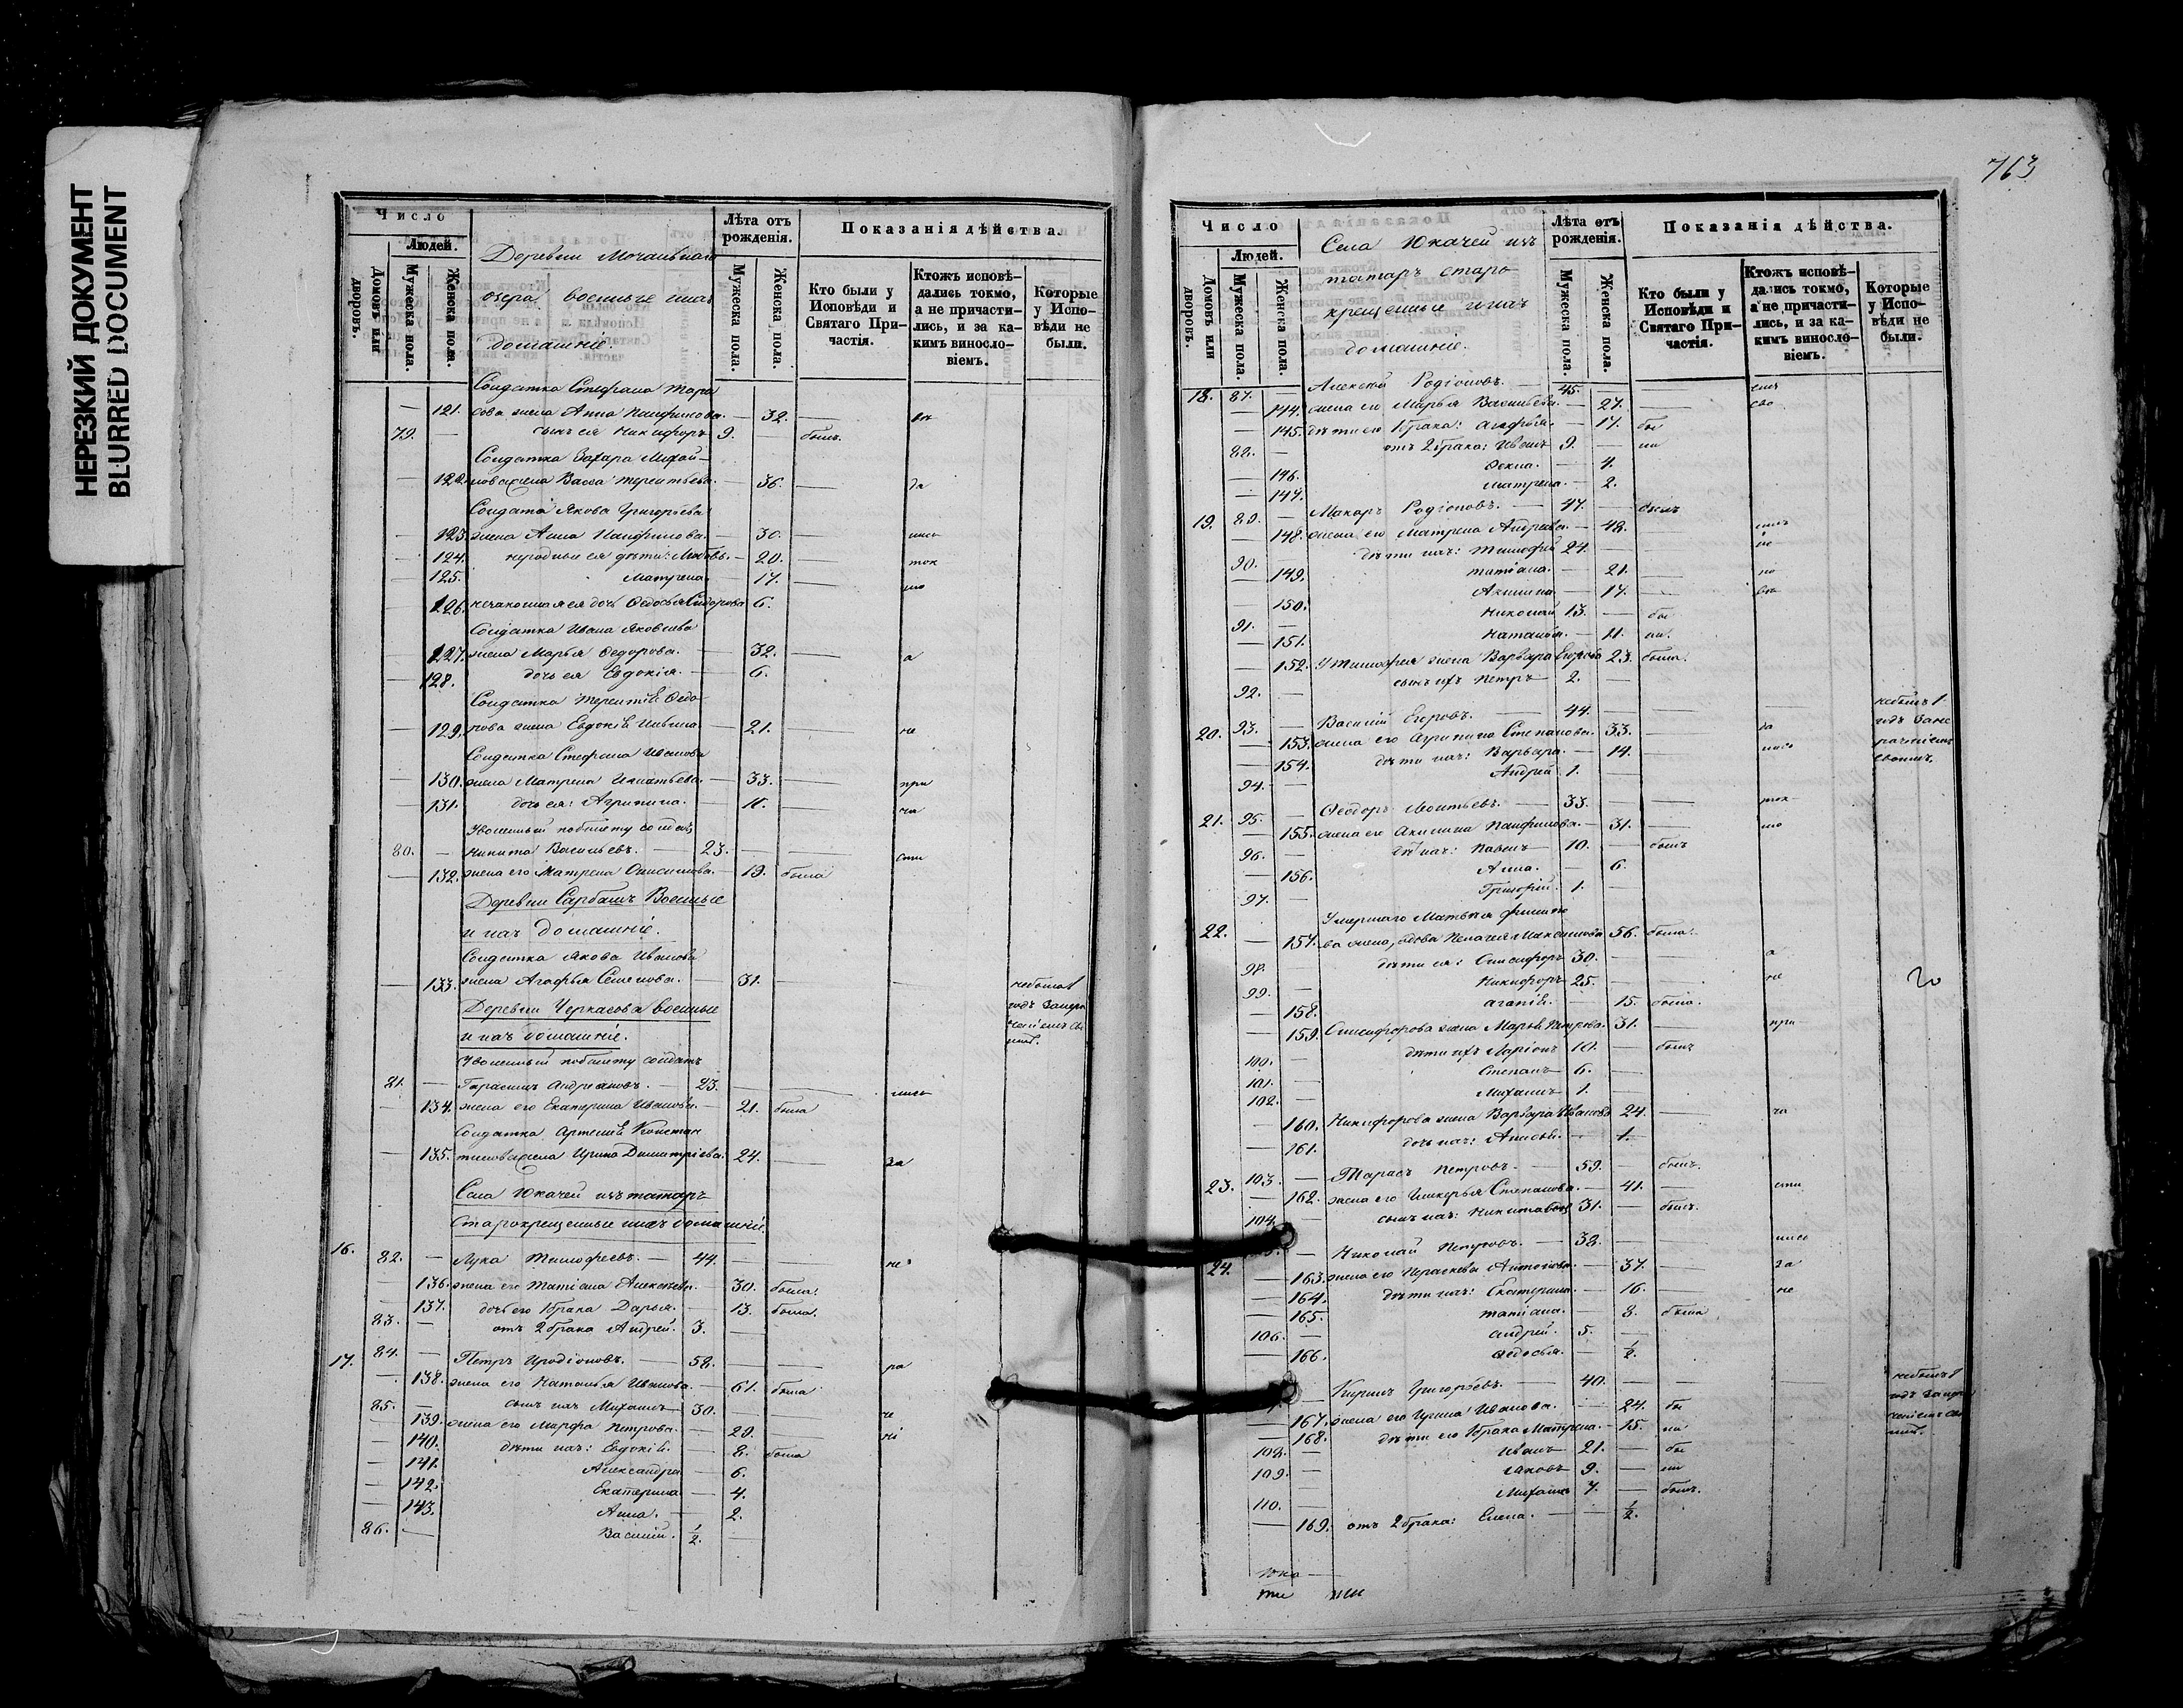 НЕРЕЗКИЙ ДОКУМЕНТ
BLURRED DOCUMENT
Число
Людей.
Домовъ или дворовъ.
Мужеска пола.
Женска пола.
Деревни
озера военные и ихъ
домашніе.
Лѣта отъ рожденія.
Мужеска пола.
Женска пола.
Показанія дѣйства.
Кто были у Исповѣди и Святаго При-частія.
Ктожъ исповѣ-дались токмо, а не причасти-лись, и за ка-кимъ виносло-віемъ.
Которые у Испо-вѣди не были.
Солдатка Стефана
121. жена Анна Панфилова. — 32.
79. — сынъ ея Никифоръ 9. — былъ.
Солдатка Захара Михай-
122. лова жена Васса Терентьева. — 36. за
Солдата Якова Григорьева
123. жена Анна Панфилова. — 30.
124. дѣти: — 20. ток
125. Матрена. — 17. мо
126. дочь Ѳедосья Сидорова 6.
Солдатка Ивана Яковлева
127. жена Марья Ѳедорова. — 32. а
128. дочь ея Евдокія. — 6.
Солдатка Терентія Ѳедо-
129. рова жена Евдокія — 21. не
Солдатка Стефана Иванова
130. жена Матрена Игнатьева — 33. при
131. дочь ея: Агрипина. — ча
Уволенный по билету солдатъ
80. — Никита Васильевъ. — 23. — сти
132. жена его Матрена Онисимова. — 19. была
Деревни Сарбашъ Военные
и ихъ домашніе.
Солдатка Якова Иванова
133. жена Агафья Семенова. — 31. — не была 1
годъ за
Деревни Черкасова военные
и ихъ домашніе.
Уволенный по билету солдатъ
81. — Герасимъ Андреяновъ. — 23. — лись
134. жена его Екатерина Иванова. — 21. была
Солдатка Артемія Констан
135. тинова жена Ирина Димитріева. 24. за
Села Юкачей изъ татаръ
Старокрещенные и ихъ домашніе.
16. 82. — Лука Тимофеевъ. — 44. — не
136. жена его Татіана Алексѣева. — 30. была.
137. дочь его 1 брака Дарья. — 13. была.
83. — отъ 2 брака Андрей. 3. —
17. 84. — Петръ Иродіоновъ. — 58. — ра
138. жена его Наталья Иванова. — 61. была
85. — сынъ ихъ Михаилъ 30. — че
139. жена его Марфа Петрова. — 29. ні
140. дѣти ихъ: Евдокія. — 8. была
141. Александра — 6.
142. Екатерина — 4.
143. Анна. — 2.
86. — Василій. 1/2. —
763
Число
Людей.
Домовъ или дворовъ.
Мужеска пола.
Женска пола.
Села Юкачей изъ
татаръ старо-
крещенные и ихъ
домашніе.
Лѣта отъ рожденія.
Мужеска пола.
Женска пола.
Показанія дѣйства.
Кто были у Исповѣди и Святаго При-частія.
Ктожъ исповѣ-дались токмо, а не причасти-лись, и за ка-кимъ виносло-віемъ.
Которые у Испо-вѣди не были.
18. 87. — Алексѣй Родіоновъ. — 45. — емъ
144. жена его Марья Васильева. — 27. — сво
145. дѣти его 1 брака: Агафья. — 17. бы
88. — отъ 2 брака: Иванъ 9. — ли
146. Ѳекла. — 4.
147. Матрена. — 2.
19. 89. — Макаръ Родіоновъ. — 47. — былъ
148. жена его Матрена Андреева. — 48. —
90. — дѣти ихъ: Тимофей 24. —
149. Татіана. — 21. — но
150. Акилина. — 17. —
91. — Николай 13. — бы
151. Наталья. — 11. ли.
152. у Тимофея жена Варвара Егорова 23. была.
92. — сынъ ихъ Петръ 2. —
20. 93. — Василій Егоровъ. — 44. — не былъ 1
годъ за не
153. жена его Агрипина Степанова. 33. — за
154. дѣти ихъ: Варвара. — 14. —
94. — Андрей 1. —
21. 95. — Ѳеодоръ Леонтьевъ. — 33. — ток
155. жена его Акилина Панфилова. — 31. — мо
96. — дѣти ихъ: Павелъ 10. — былъ
156. Анна. — 6.
97. — Григорій. 1. —
Умершаго Матвѣя Филиппо
22. — 157. ва жена, вдова Пелагея Максимова 56. была.
98. — дѣти ея: Онисифоръ 30. — а
99. — Никифоръ 25. — не
158. Агапія. — 15. была.
159. Онисифорова жена Марья Петрова. 31. — при
100. — дѣти ихъ Ларіонъ 10. — былъ
101. — Степанъ 6. —
102. — Михаилъ 1. —
160. Никифорова жена Варвара Иванова 24. — ча
161. дочь ихъ: — 1.
23. 103. — Тарасъ Петровъ. — 59. — былъ.
162. жена его Гликерья Степанова. — 41. — сти
104. — сынъ ихъ: Никита 31. — былъ.
24. — Николай Петровъ. — 38. — лись
163. жена его Параскева Антонова. — 37. — за
164. дѣти ихъ: Екатерина. — 16. — не
165. Татіана. — 8. была
106. — Андрей. 5. —
166. Ѳедосья. — 1/2.
Кирилъ Григорьевъ. — 40. — не былъ 1
годъ за
167. жена его Ирина Иванова. — 24. бы
168. дѣти его 1 брака Матрена. — 15. ли
108. — Иванъ 21. — бы
109. — Іаковъ 9. — ли
110. — Михаилъ 7. — былъ.
169. отъ 2 брака: Елена. — 1/2.